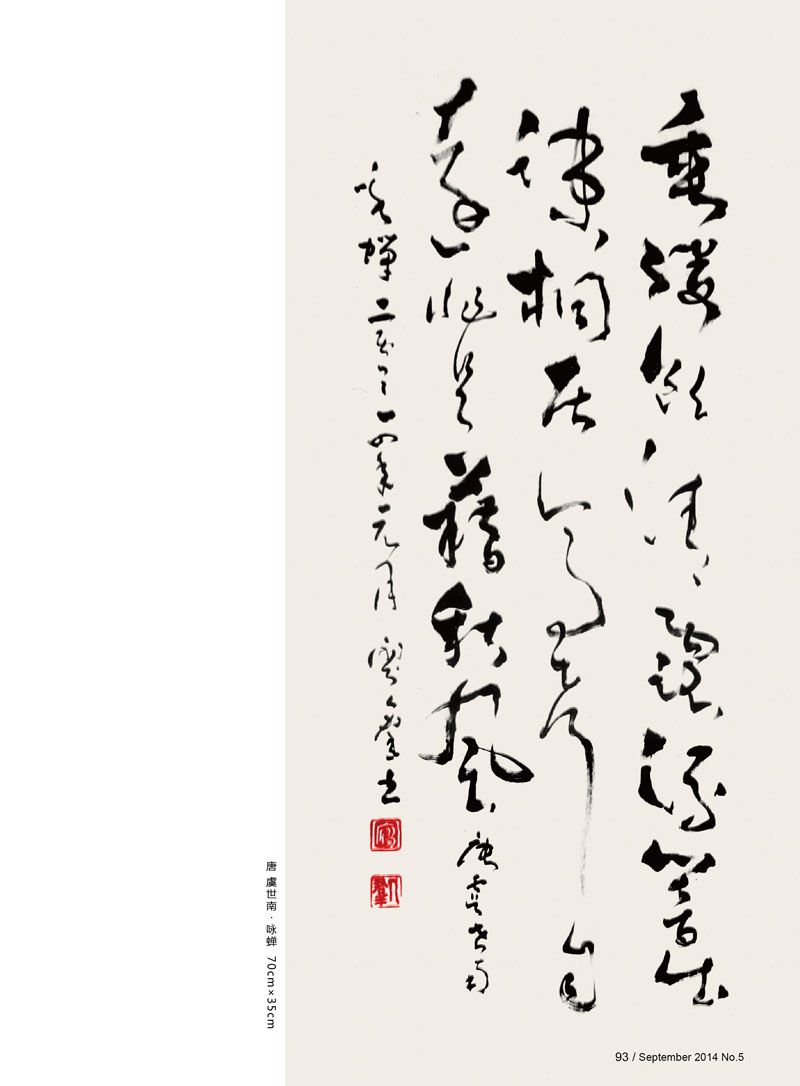 垂緌飲清露流響出
疎桐居高聲自
遠非是藉秋風 唐虞世南
咏蟬 二零一四年元月
唐 虞世南 · 咏蝉 70cm×35cm
93 / September 2014 No.5